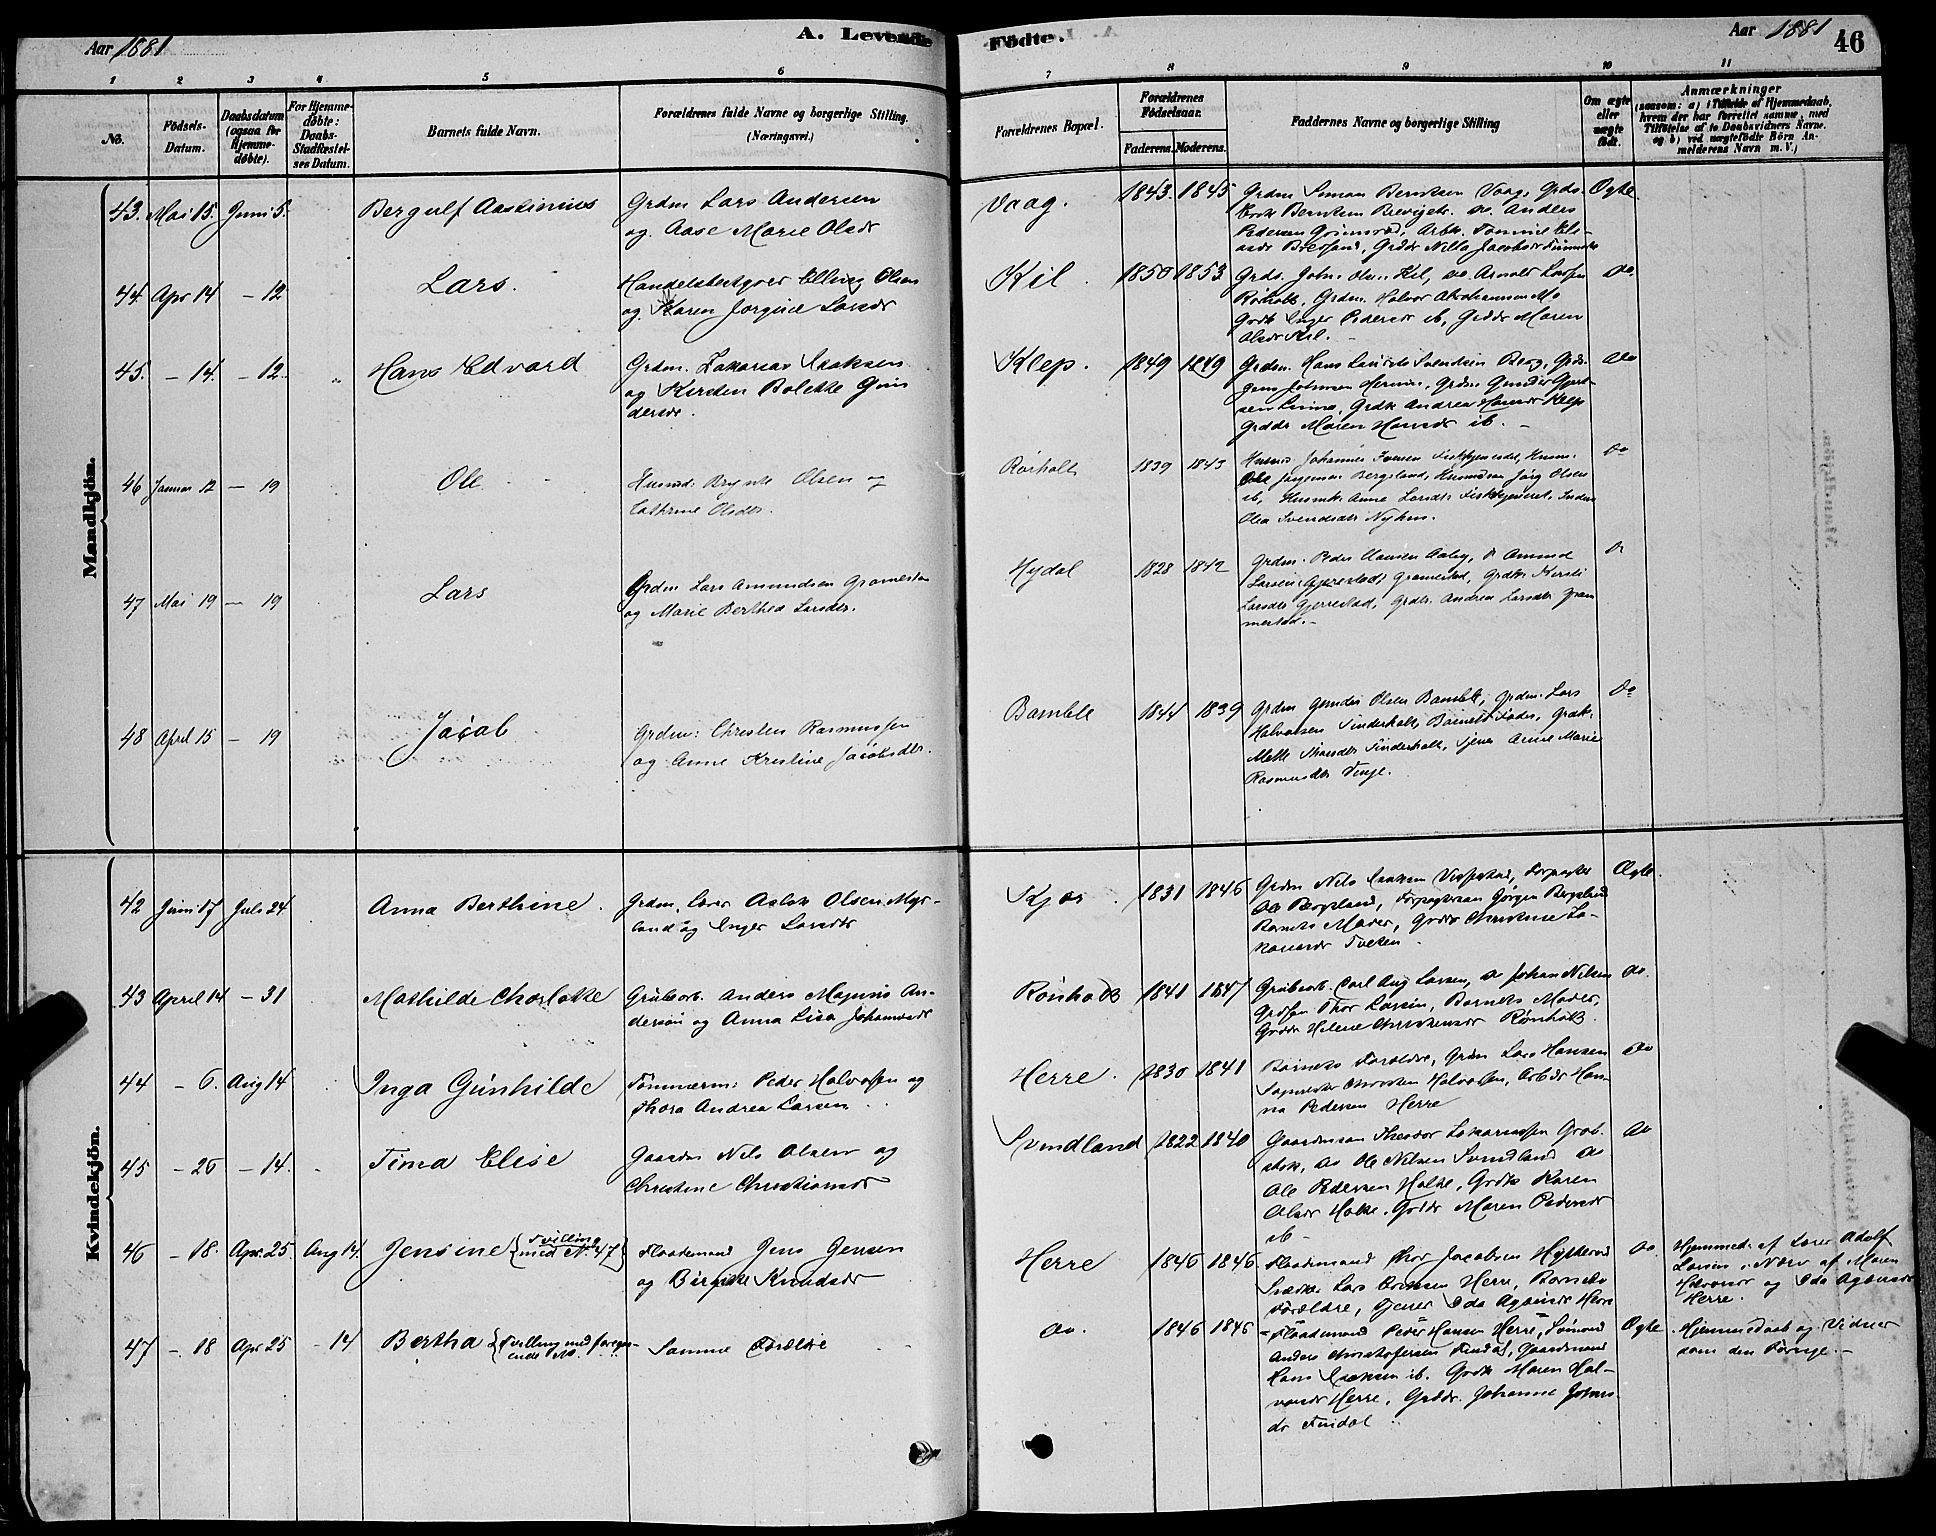 Aar 1881
A. Levende Födte.
Aar 1881
46
1 2 3 4 5 6 7 8 9 10 11
No.
Födsels-Datum.
Daabsdatum (ogsaa for Hjemme-döbte).
For Hjemme-döbte: Daabs-Stadfæstel-ses Datum.
Barnets fulde Navn.
Forældrenes fulde Navne og borgerlige Stilling. (Næringsvei.)
Forældrenes Bopæl.
Forældrenes Födselsaar.
Faderens. Moderens.
Faddernes Navne og borgerlige Stilling
Om ægte eller uægte födt.
Anmærkninger
(saasom: a) i Tilfælde af Hjemmedaab, hvem der har forrettet samme, med Tilföielse af to Daabsvidners Navne. og b) ved uægtefödte Börn An-melderens Navn m. V.)
Mandkjön.
43. Mai 15. Juni 5. Bergulf Aastinius
Grdm Lars Andersen
og Aase Marie Olsdr
Vaag. 1843. 1845
Grdm Simon Berntsen Vaag, Grds.
Berntsen do. Anders
Pedersen
Ægte.
44. Apr 14 - 12 Lars.
Handelsbestyrer Elling Olsen
og Karen Jorgine Larsdr
Kil. 1850 1853
Grds. John Olsen Kil, do Larsen
Rörholt, Grdm. Halvor Abrahamsen Mo
Grdk Inger Pedersdr ib, Grddr Maren
Olsdr Kil.
Do.
45. - 14. - 12. Hans Edvard
Grdm. Zakarias Isaksen
og Kirsten Bolette Gun
dersdr.
Klep. 1849 1849
Grdm. Hans Laurits Svendsen Berg, Grds.
Grdk Andrea Hansdr Klep
Grddr Maren Hansdr ib. -
do
46 Januar 12 - 19 Ole
Husmd. Olsen og
Cathrine Olsdr.
Rörholt 1839 1843
Johannes Iversen
Ole Jörgensen Bergsland, Jörg Olsen
ib, Husmk. Anne Larsdr
Olea Svendsdtr Nyhus.
Do
47 Mai 19 - 19 Lars
Grdm Lars Amundsen Gramestad
og Marie Berthea Larsdr.
Hydal 1828 1842
Grdm. Peder Hansen Aaby, Amund
Larsen Gramestad, Grdk. Kirsti
Larsdr Gjerrestad, Grdtr. Andrea Larsdr Gram
mestad. -
Do
48 April 15 - 19 Jacob
Grdm: Christen Rasmussen
og Anne Kristine Jacobsdr.
Bamble 1844 1839
Grdm Gunder Olsen Bamble, Grdm. Lars
Halvorsen Sinderholt, Barnets Fader, Grdk.
Mette Sinderholt, Tjener Anne Marie
Rasmusdtr Vinje.
Do
Kvindekjön.
42 Juni 17 Juli 24 Anna Berthine.
Grdm. Lærer Aslak Olsen Myr-
land og Inger Larsdtr
Kjær. 1831 1846
Grdm Nils Isaksen, Forpagter
Ole Bergsland, Jörgen Bergsland
Barnets Moder, Grddr Christine Za-
kariasdr Tveten.
Ægte.
43 April 14 - 31 Mathilde Charlotte
Grubearb. Anders Magnus An-
dersön og Anna Lisa Johannesdr
Rönholt 1841 1847
Grubearb. Carl Aug Larsen, do Johan Nielsen
Thor Larsen, Barnets Moder,
Grddr Helene Christensdr Rönholt.
do.
44 - 6. Aug 14 Inga Gunhilde
Tömmerm: Peder Halvorsen og
Thora Andrea Larsen
Herre. 1830 1841
Barnets Forældre, Grdm Lars Hansen
Christen Halvorsen, Arbdr Han-
na Pedersen Herre
do
45 - 26 - 14. Tina Elise
Gaardm Nils Olsen og
Christine Christiansdr
Svindland 1822 1840
Gaardman Theodor Zakariassen Grob-
stok, do Ole Nilsen Svindland do
Ole Pedersen Holte, Grdk Karen
Olsdr Holte, Grddr Maren Pedersdr
ib -
do
46 - 18. Apr. 25 Aug 14. Jensine {Tvilling med No 47}
Flaademand Jens Jensen
og Birgitte Knudsdr
Herre 1846 1846
Flaademand Thor Jacobsen
Lars Eriksen Herre, Barnets
Forældre, Tjener Ida Agbensdr Herre
do.
Hjemmed. af Lærer Adolf
Larsen i Nærv af Maren
Halvorsdr og Ida Agbensdr
Herre.
47 - 18 Apr 25 - 14 Bertha {Tvilling med foregaa-ende No
Samme Forældre
do. 1846 1846
Flaademand Peder Hansen Herre,
Anders Christofersen Findal, Gaardmand
Hans Isaksen ib. Grdk Maren Hal-
vorsdr Herre, Grddr. Johanne Johns
dr Findal
Ægte.
Hjemmedaab og Vidner
som den Forrige. -